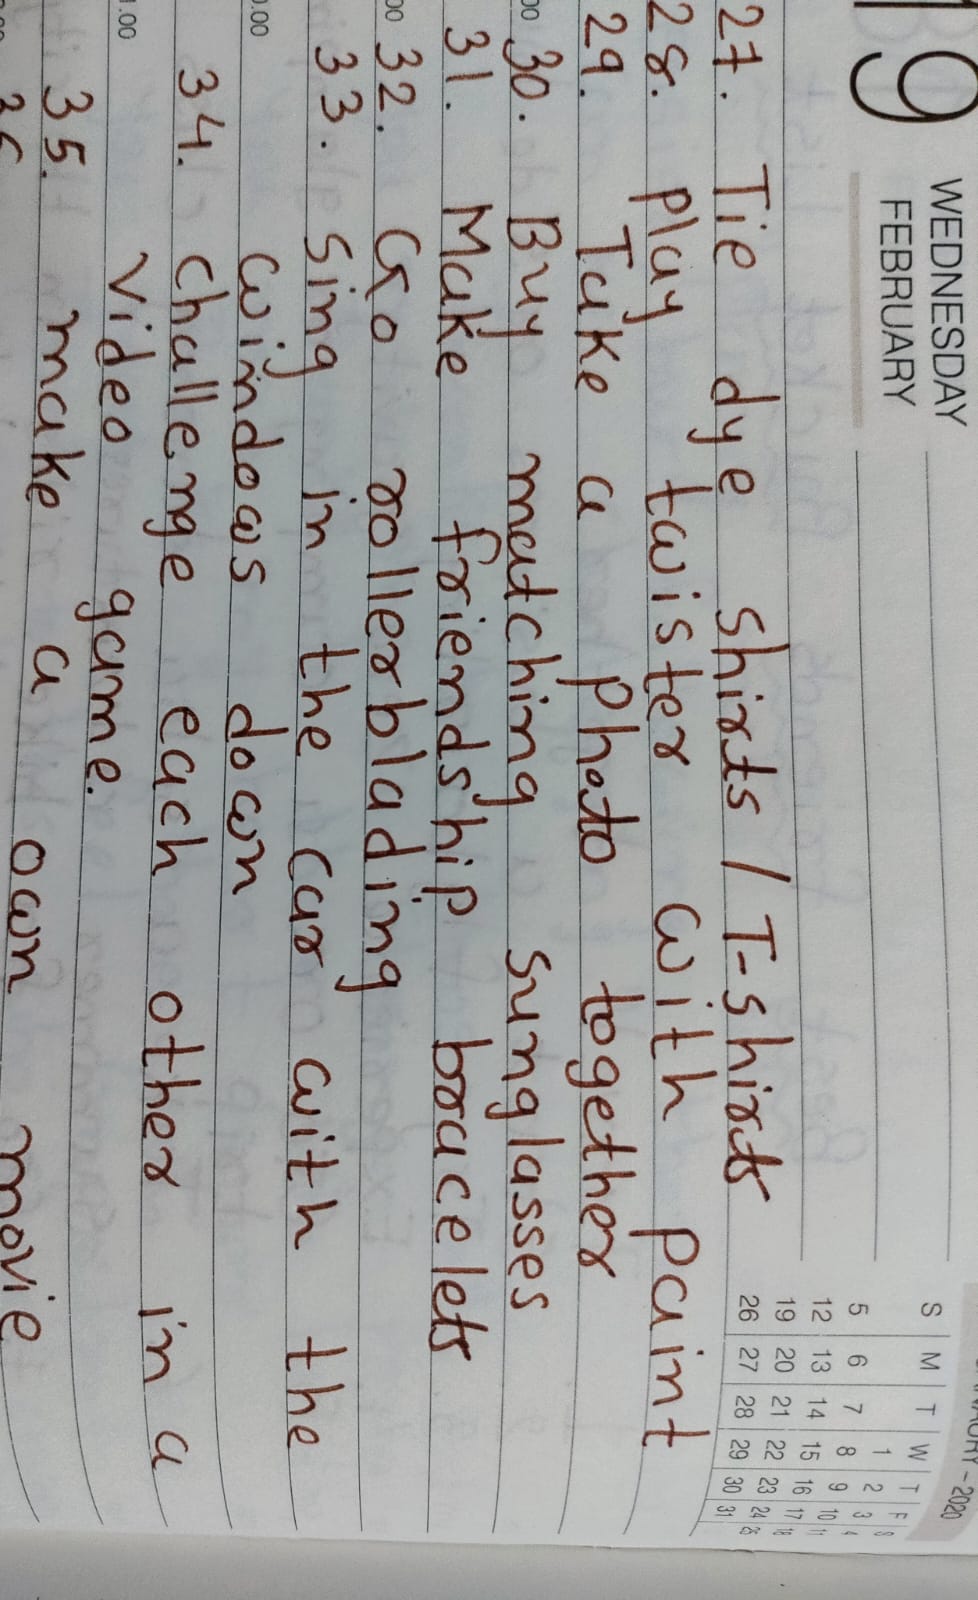 19
WEDNESDAY
FEBRUARY
- 2020
S M T W T F S
1 2 3 4
5 6 7 8 9 10 11
12 13 14 15 16 17 18
19 20 21 22 23 24 25
26 27 28 29 30 31
27. Tie dye shirts / T-shirts
28. play twister with paint
29. Take a photo together
30. Buy matching sunglasses
31. Make friendship bracelets
32. Go rollerblading
33. Sing in the car with the
windows down
34. Challenge each other in a
video game.
35. make a own movie